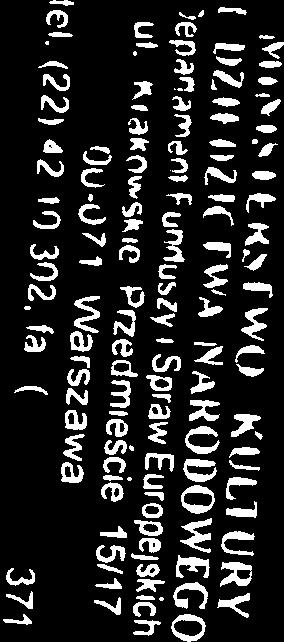 MINISTERSTWO KULTURY
I DZIEDZICTWA NARODOWEGO
Departament Funduszy i Spraw Europejskich
ul. Krakowskie Przedmieście 15/17
00-071 Warszawa
tel. (22) 42 10 302, fa (
371